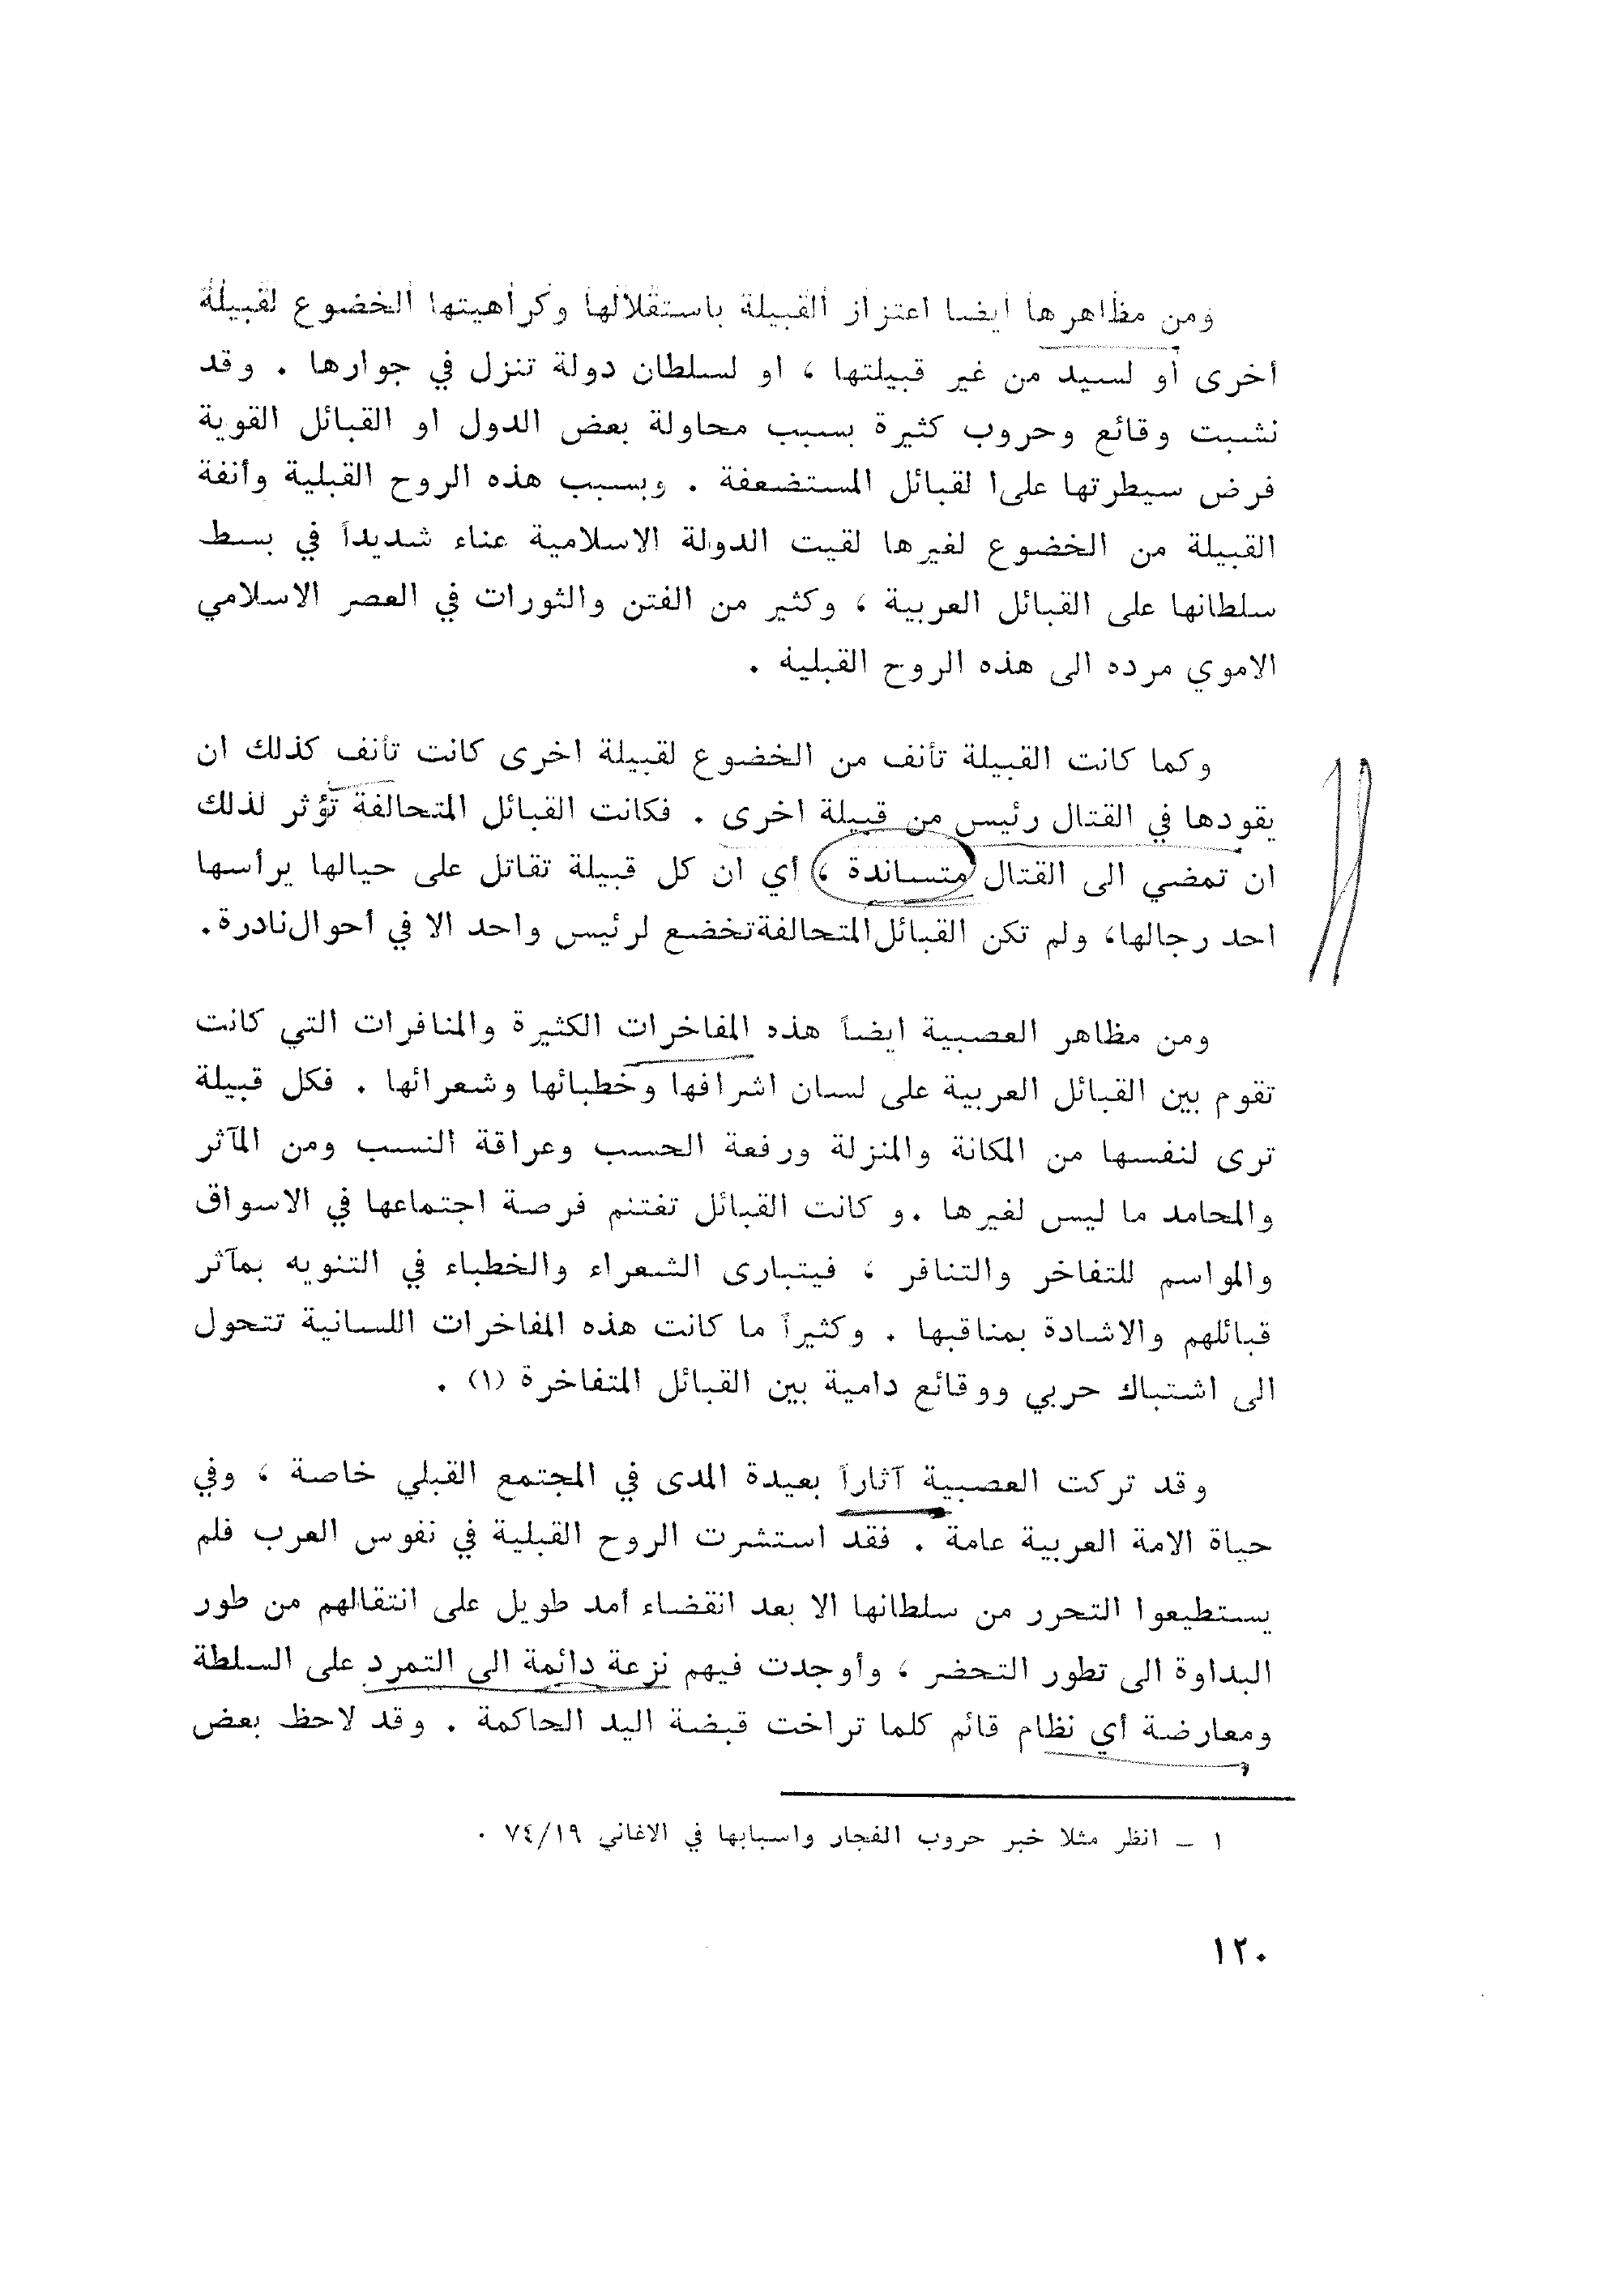 ومن مظاهرها ايضا اعتزاز القبيلة باستقلالها وكراهيتها الخضوع لقبيلة
أخرى أو لسيد من غير قبيلتها ، او لسلطان دولة تنزل في جوارها . وقد
نشبت وقائع وحروب كثيرة بسبب محاولة بعض الدول او القبائل القوية
فرض سيطرتها على ا لقبائل المستضعفة . وبسبب هذه الروح القبلية وأنفة
القبيلة من الخضوع لغيرها لقيت الدولة الاسلامية عناء شديداً في بسط
سلطانها على القبائل العربية ، وكثير من الفتن والثورات في العصر الاسلامي
الاموي مرده الى هذه الروح القبلية .
وكما كانت القبيلة تأنف من الخضوع لقبيلة اخرى كانت تأنف كذلك ان
يقودها في القتال رئيس من قبيلة اخرى . فكانت القبائل المتحالفة تؤثر لذلك
ان تمضي الى القتال متساندة ، أي ان كل قبيلة تقاتل على حيالها يرأسها
احد رجالها، ولم تكن القبائل المتحالفة تخضع لرئيس واحد الا في أحوال نادرة.
ومن مظاهر العصبية ايضاً هذه المفاخرات الكثيرة والمنافرات التي كانت
تقوم بين القبائل العربية على لسان اشرافها وخطبائها وشعرائها . فكل قبيلة
ترى لنفسها من المكانة والمنزلة ورفعة الحسب وعراقة النسب ومن المآثر
والمحامد ما ليس لغيرها .و كانت القبائل تغتنم فرصة اجتماعها في الاسواق
والمواسم للتفاخر والتنافر ، فيتبارى الشعراء والخطباء في التنويه بمآثر
قبائلهم والاشادة بمناقبها . وكثيراً ما كانت هذه المفاخرات اللسانية تتحول
الى اشتباك حربي ووقائع دامية بين القبائل المتفاخرة (١) .
وقد تركت العصبية آثاراً بعيدة المدى في المجتمع القبلي خاصة ، وفي
حياة الامة العربية عامة . فقد استشرت الروح القبلية في نفوس العرب فلم
يستطيعوا التحرر من سلطانها الا بعد انقضاء أمد طويل على انتقالهم من طور
البداوة الى تطور التحضر ، وأوجدت فيهم نزعة دائمة الى التمرد على السلطة
ومعارضة أي نظام قائم كلما تراخت قبضة اليد الحاكمة . وقد لاحظ بعض
١ – انظر مثلا خبر حروب الفجار واسبابها في الاغاني ٧٤/١٩ .
١٢٠